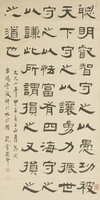 聰明叡智守之以愚功被
天下守之以讓勇力振世
守之以怯富有四海守之
以謙此所謂損之又損之
之道也